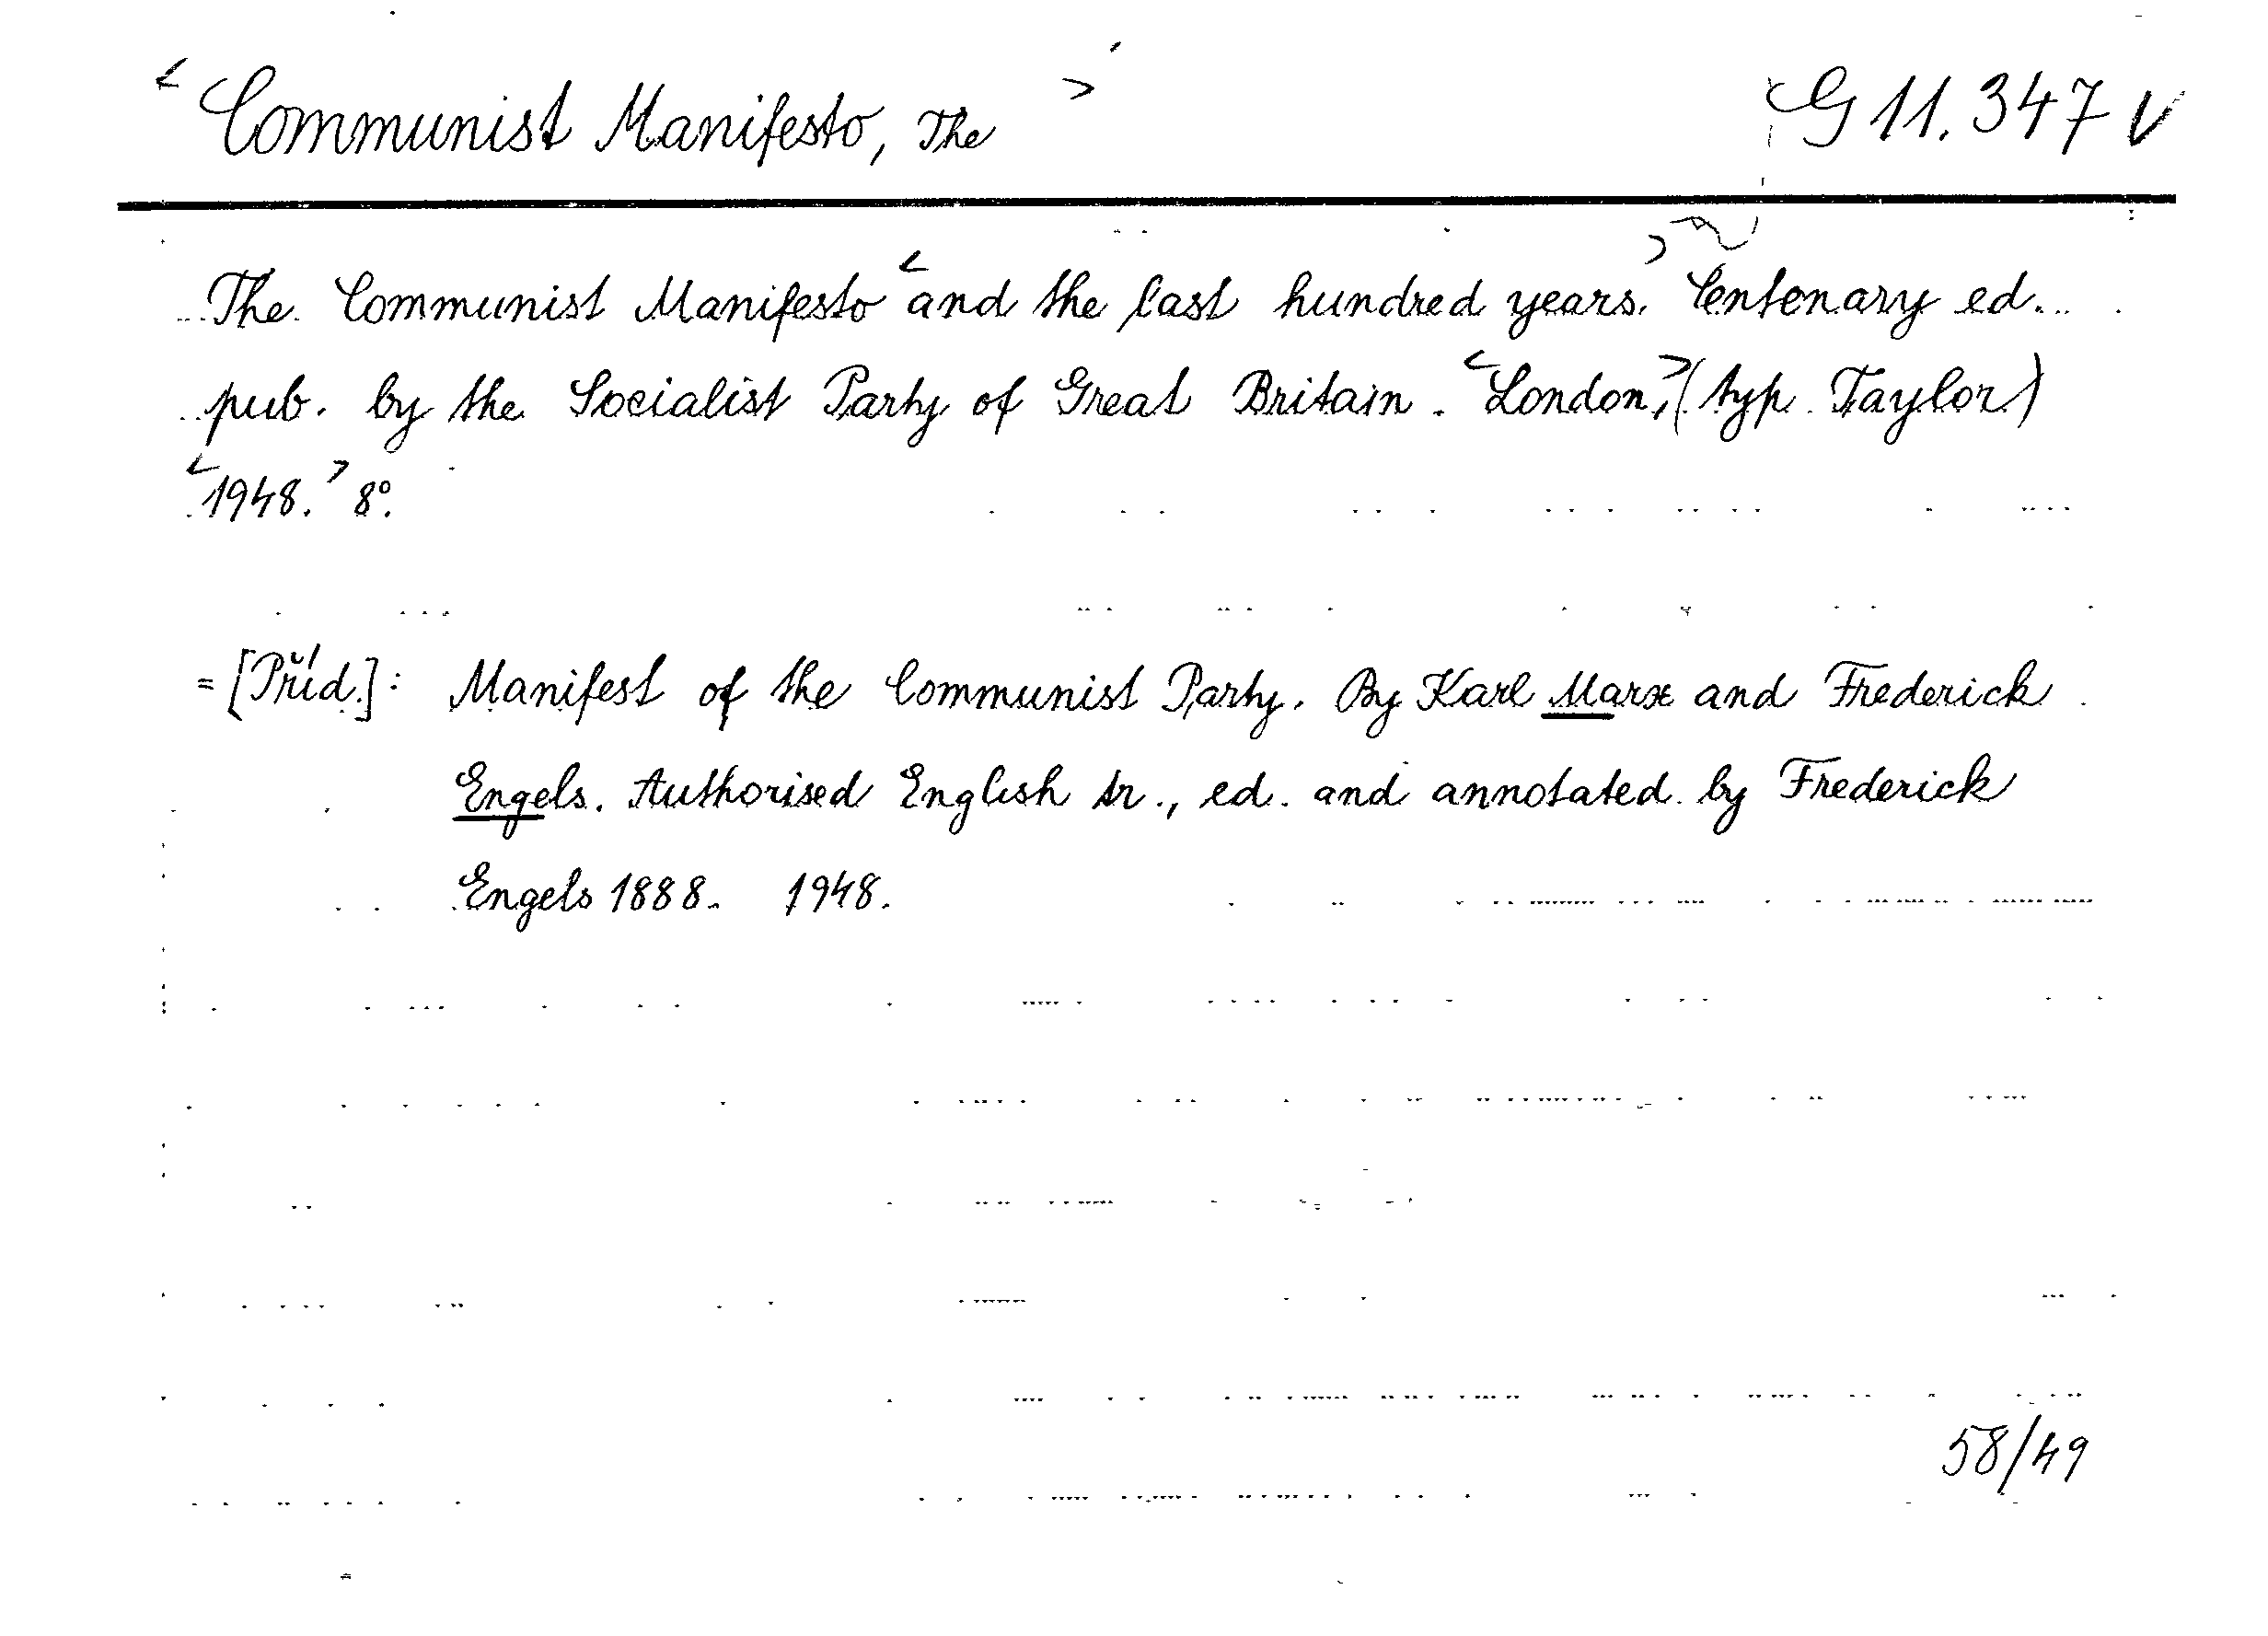 < Communist Manifesto, The > G 11.347 V
The Communist Manifesto < and the last hundred years. > Centenary ed.
pub. by the Socialist Party of Great Britain. < London, > (typ. Taylor)
< 1948. > 8°.
= [Příd.]: Manifest of the Communist Party. By Karl Marx and Frederick
Engels. Authorised English tr., ed. and annotated by Frederick
Engels 1888. 1948.
58/49